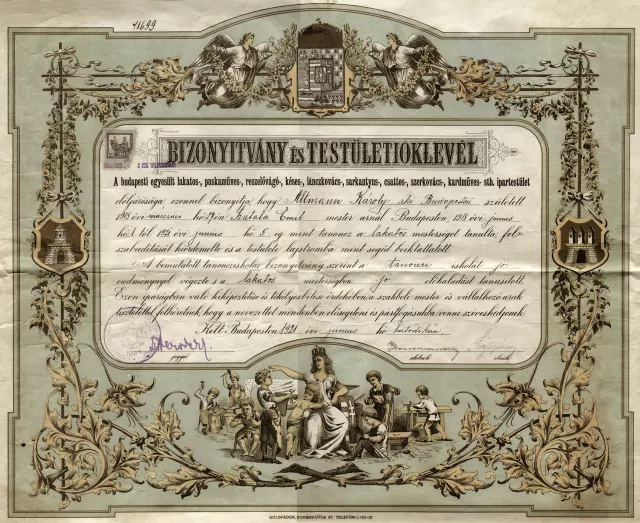 41699
BIZONYITVÁNY ÉS TESTÜLETIOKLEVÉL
A budapesti egyesült lakatos-, puskaműves-, reszelővágó-, késes-, lánczkovács-, sarkantyus-, csattos-, szerkovács-, kardműves- stb. ipartestület
elöljárósága ezennel bizonyitja hogy Altmann Károly ki Budapesten született
1903 évi hó Katala Emil mester urnál Budapesten, 1918 évi junius
hó től 1921 évi junius hó 5 ig mint tanoncz a lakatos mesterséget tanulta, fel-
szabaditását kiérdemelte és a testületi lajstromba mint segéd beiktattatott.
A bemutatott tanoncziskolai bizonyitvány szerint a tanoncz iskolát jó
eredménynyel végezte s a lakatos mesterségben jó előhaladást tanusitott.
Ezen iparágban való kiképeztetése és tökélyesbitése érdekében, a szakbeli mester és vállalkozó urak
tisztelettel felkéretnek hogy a nevezettet mindenben elősegiteni és pártfogásukba venni sziveskedjenek.
Kelt Budapesten 1921 évi junius hó
jegyző elölnök elnök
GOLDFADEN, DOHÁNY-UTCA 37. TELEFON J. 125-21